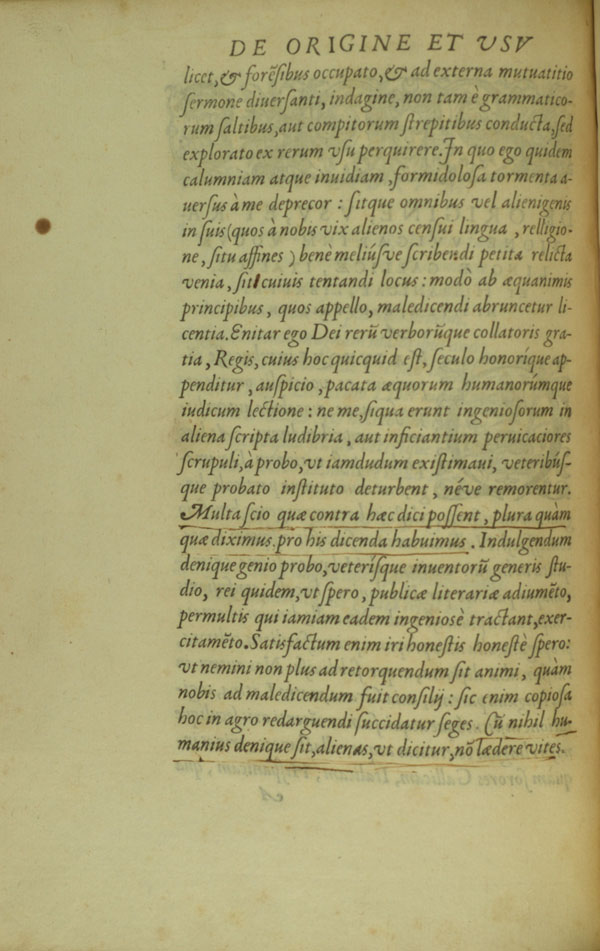 DE ORIGINE ET VSV
licet, & forẽsibus occupato, & ad externa mutuatitio
sermone diuersanti, indagine, non tam è grammatico-
rum saltibus, aut compitorum strepitibus conducta, sed
explorato ex rerum vsu perquirere. In quo ego quidem
calumniam atque inuidiam, formidolosa tormenta a-
uersus à me deprecor : sitque omnibus vel alienigenis
in suis (quos à nobis vix alienos censui lingua , relligio-
ne, situ affines ) benè meliúsve scribendi petita relicta
venia, sit cuiuis tentandi locus : modò ab æquanimis
principibus, quos appello, maledicendi abruncetur li-
centia. Enitar ego Dei rerũ verborũque collatoris gra-
tia, Regis, cuius hoc quicquid est, seculo honoríque ap-
penditur, auspicio, pacata æquorum humanorúmque
iudicum lectione : ne me, siqua erunt ingeniosorum in
aliena scripta ludibria, aut inficiantium peruicaciores
scrupuli, à probo, vt iamdudum existimaui, veteribús-
que probato instituto deturbent, néve remorentur.
Multa scio quæ contra hæc dici possent, plura quàm
quæ diximus pro his dicenda habuimus. Indulgendum
denique genio probo, veterísque inuentorũ generis stu-
dio, rei quidem, vt spero, publicæ literariæ adiumẽto,
permultis qui iamiam eadem ingeniosè tractant, exer-
citamẽto. Satisfactum enim iri honestis honestè spero:
vt nemini non plus ad retorquendum sit animi, quàm
nobis ad maledicendum fuit consilij : sic enim copiosa
hoc in agro redarguendi succidatur seges. Cũ nihil hu-
manius denique sit, alienas, vt dicitur, nõ lædere vites.